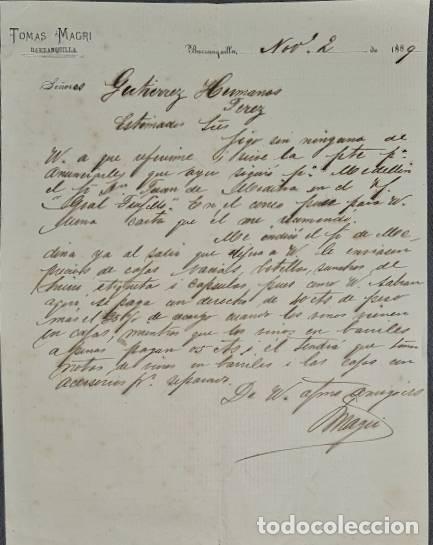 TOMAS MAGRI
BARRANQUILLA.
Barranquilla, Nov. 2 de 1889
Señores Gutierrez Hermanos
Perez
Estimados Sres
Sigo sin ninguna de
V. a que referirme i sirve la pte pa.
anunciarles que ayer siguió pa. Medellin
el Sr. Dn. Juan de Medina en el
"Gral". En el correo para V.
una carta que él me recomendó.
Me indicó el Sr. de Me-
dina ya al salir que dijera a V. le enviasen
precios de cajas botellas, de
etiqueta i capsulas, pues como V. sabran
aqui se paga un derecho de 40 cts de peso
mas el de recargo cuando los vinos vienen
en cajas, mientras que los vinos en barriles
apenas pagan 05 cts i el tendrá que tomar
notas de vinos en barriles i las cajas con
accesorios pr. separado.
De V. afmo amigo i ss
Magri
todocoleccion.net